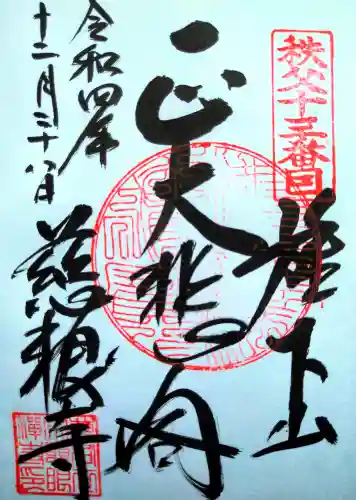 秩父十三番
旗下山
正大悲閣
令和四年
十二月二十八日
慈眼寺